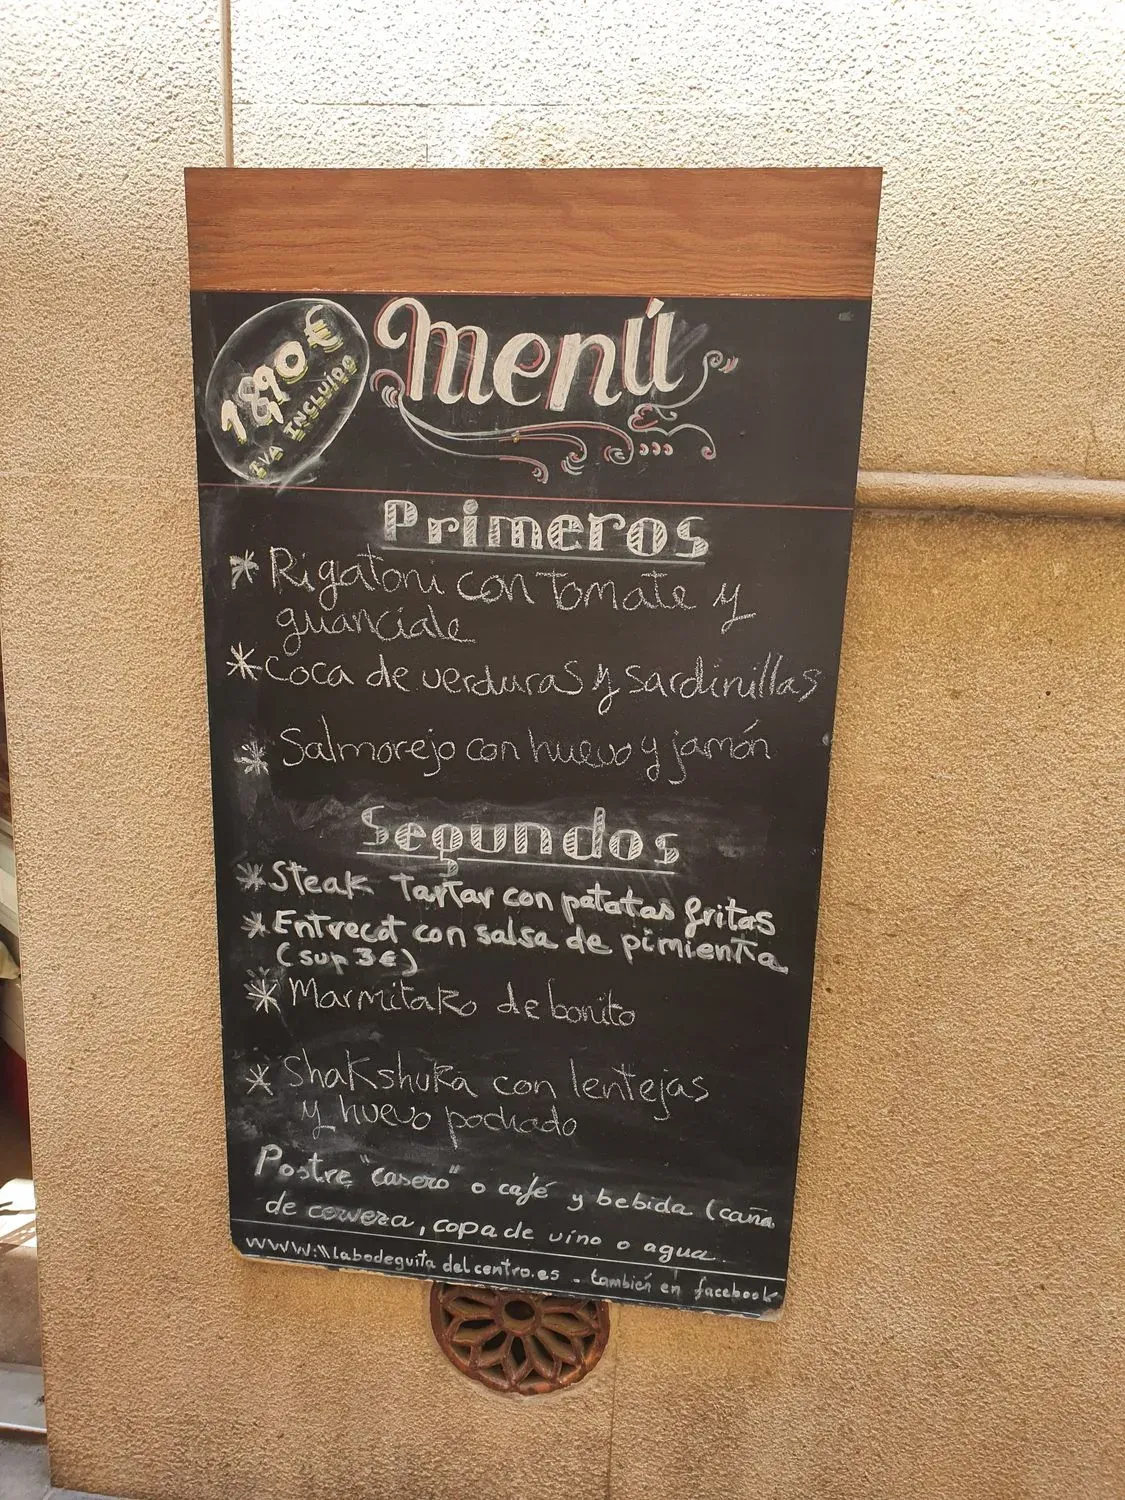 18,90€
IVA INCLUIDO
Menú
Primeros
* Rigatoni con tomate y
guanciale
* coca de verduras y sardinillas
* Salmorejo con huevo y jamón
Segundos
* Steak Tartar con patatas fritas
* Entrecot con salsa de pimienta
(sup 3€)
* Marmitako de bonito
* Shakshuka con lentejas
y huevo pochado
Postre "casero" o café y bebida (caña
de cerveza, copa de vino o agua
www:\\labodeguita del centro.es - también en facebook